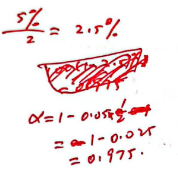 5%/2 = 2.5%
α = 1 - 0.05×½
= 1 - 0.025
= 0.975.